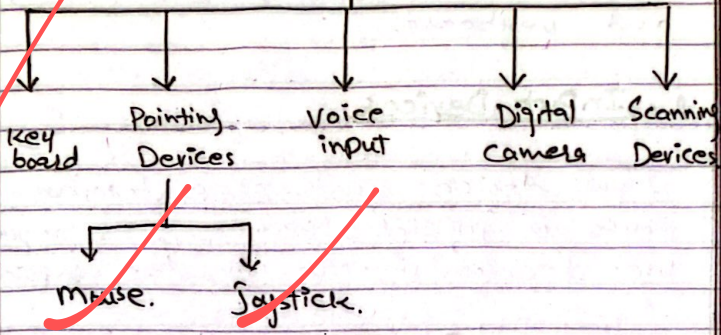 Key
board
Pointing
Devices
Voice
input
Digital
Camera
Scanning
Devices
Mouse.
Joystick.